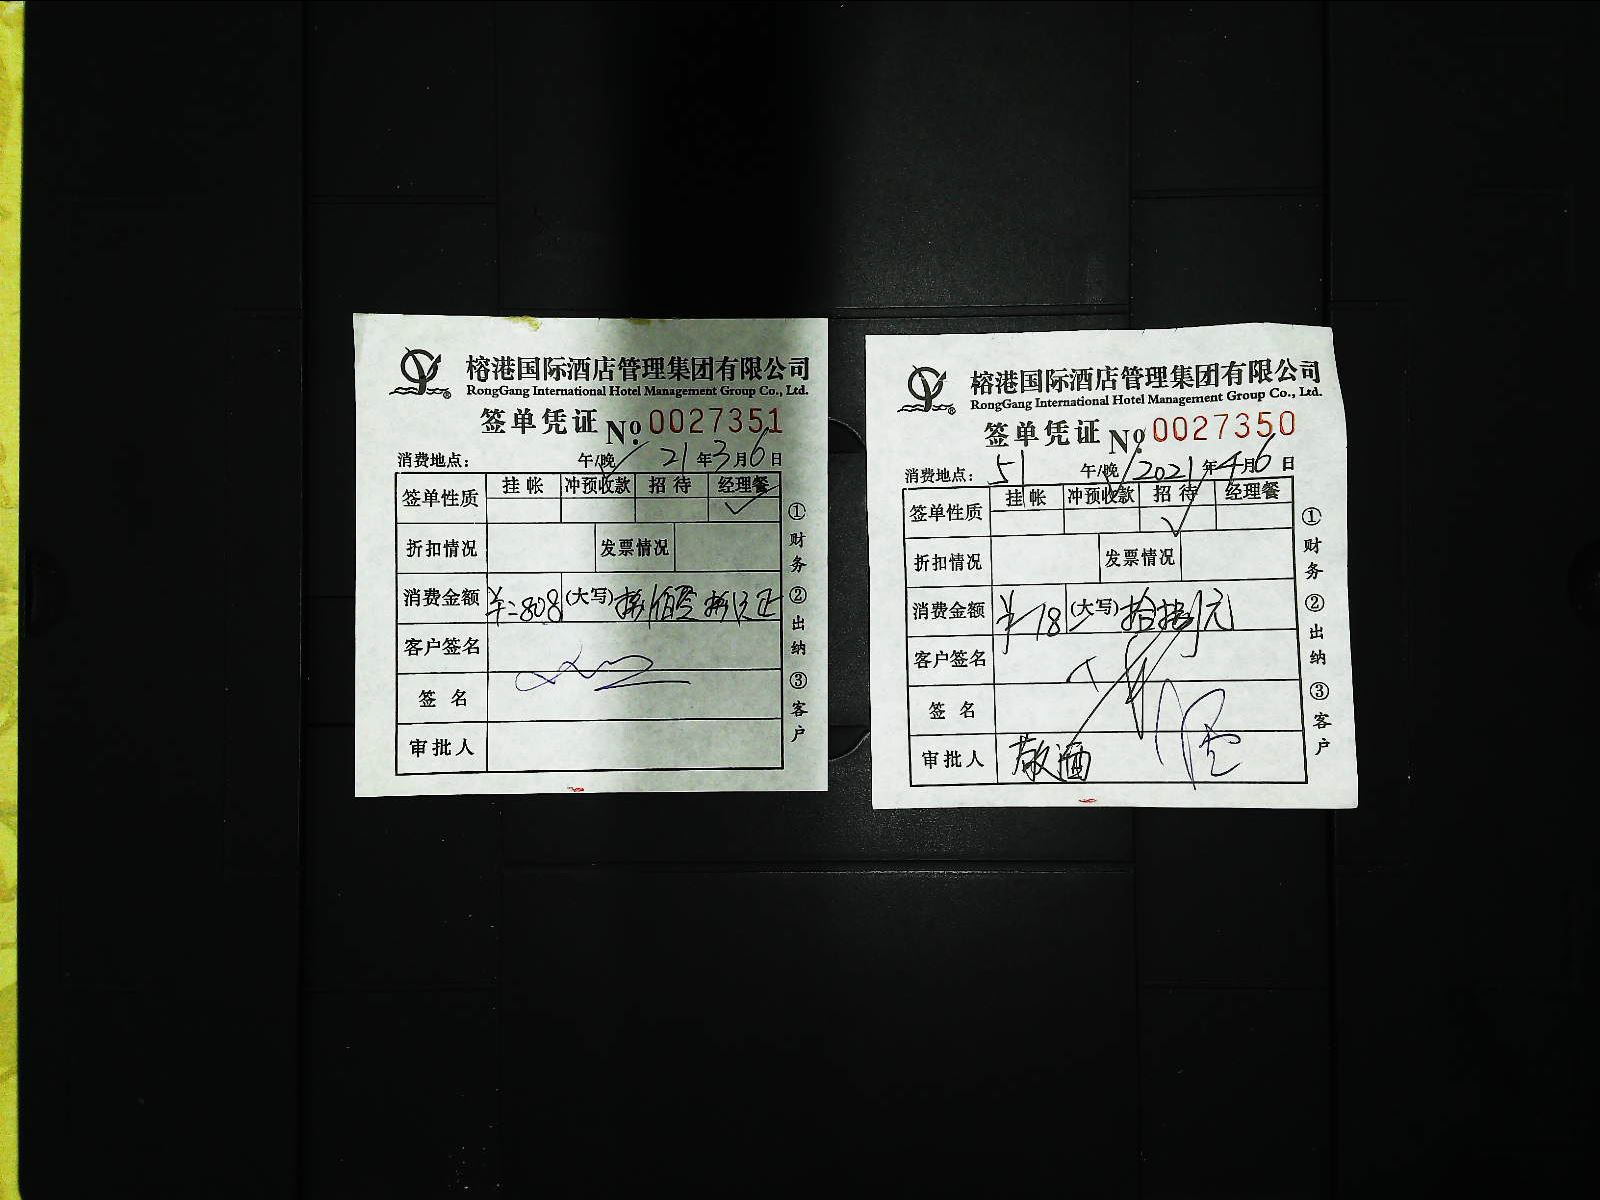 榕港国际酒店管理集团有限公司
RongGang International Hotel Management Group Co., Ltd.
签单凭证 No. 0027351
消费地点： 午/晚 21年3月6日
签单性质 挂帐 冲预收款 招待 经理餐
折扣情况 发票情况
消费金额 ¥:808 (大写) 捌佰零捌元正
客户签名
签名
审批人
①财务 ②出纳 ③客户
榕港国际酒店管理集团有限公司
RongGang International Hotel Management Group Co., Ltd.
签单凭证 No. 0027350
消费地点：51 午/晚 2021年4月6日
签单性质 挂帐 冲预收款 招待 经理餐
折扣情况 发票情况
消费金额 ¥-18 (大写) 拾捌元
客户签名
签名
审批人 敬酒
①财务 ②出纳 ③客户